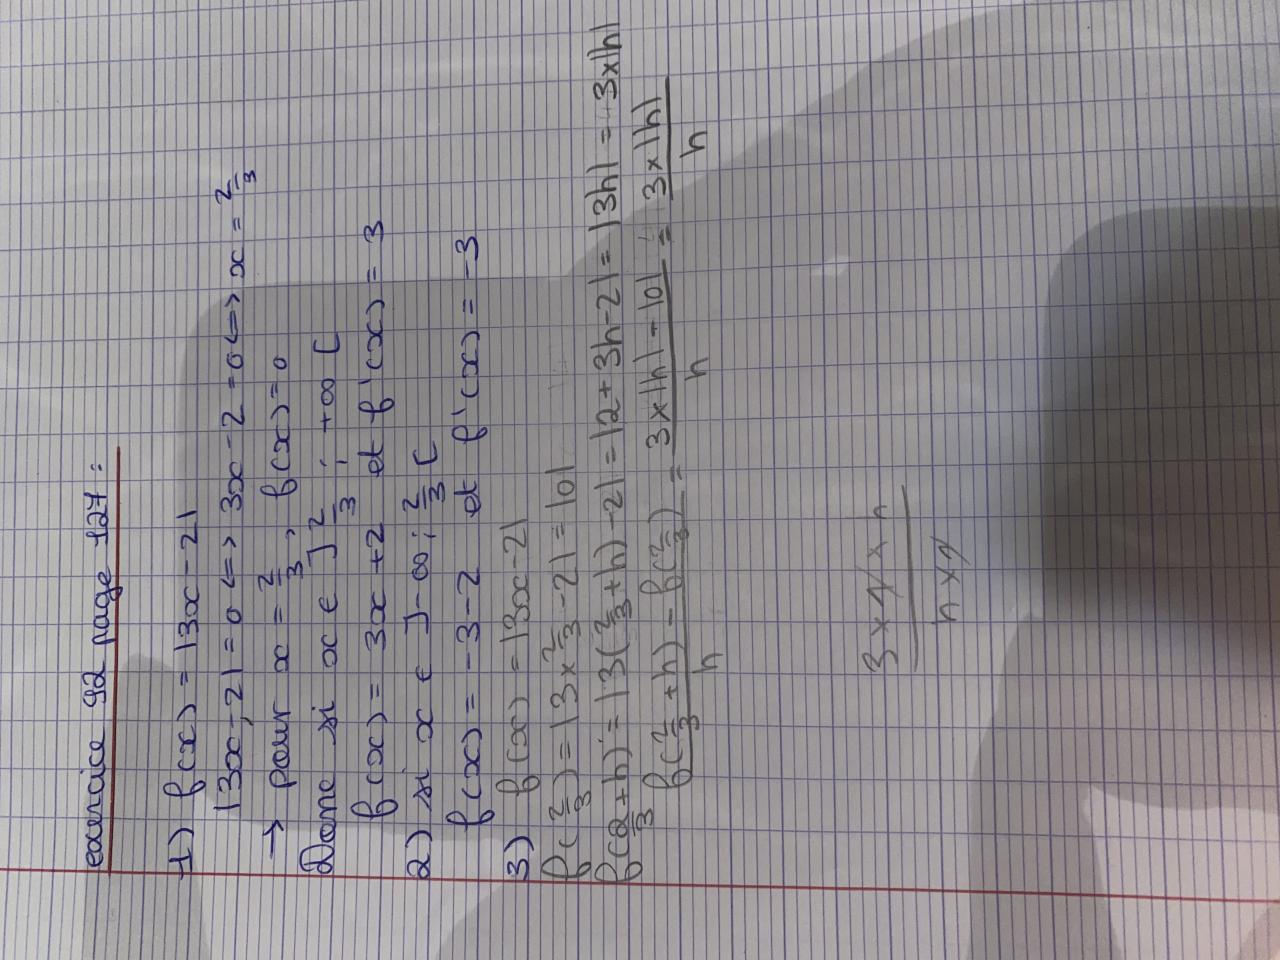 exercice 92 page 127:
1) f(x) = |3x-2|
|3x-2| = 0 <=> 3x-2 = 0 <=> x = 2/3
→ pour x = 2/3, f(x) = 0
Donc si x ∈ ]2/3 ; +∞[
f(x) = 3x+2 et f'(x) = 3
2) si x ∈ ]-∞ ; 2/3[
f(x) = -3-2 et f'(x) = -3
3) f(x) = |3x-2|
f(2/3) = |3×2/3-2| = |0|
f(2/3+h) = |3(2/3+h)-2| = |2+3h-2| = |3h| = 3×|h|
(f(2/3+h) - f(2/3))/h = (3×|h| - |0|)/h = (3×|h|)/h
(3×1×h)/(h×1)